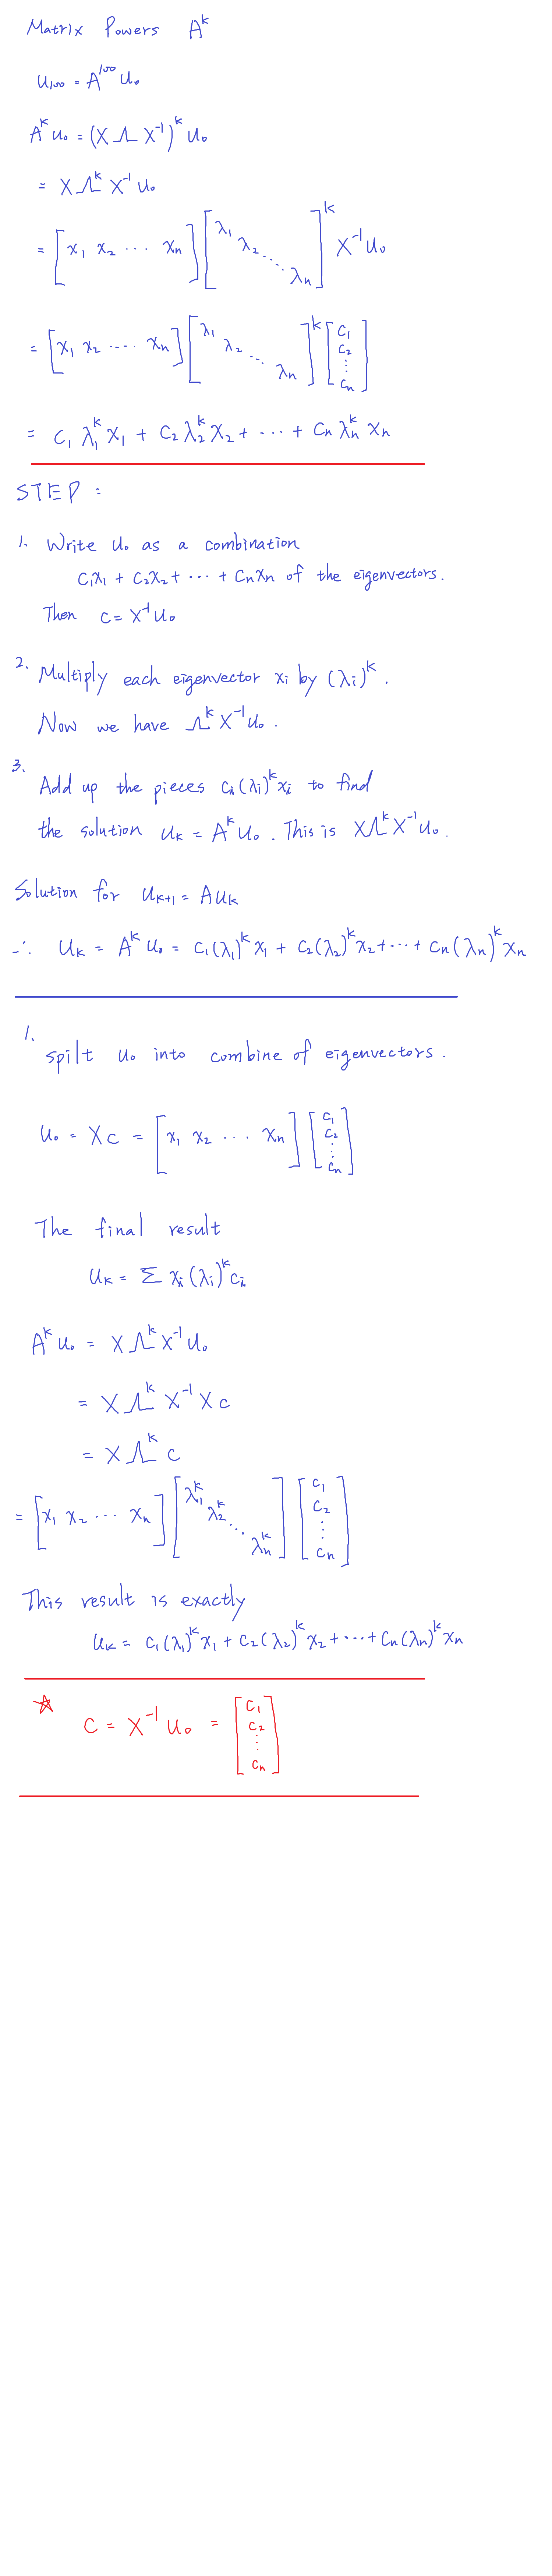 Matrix Powers A^k
u₁₀₀ = A^100 u₀
A^k u₀ = (X Λ X^-1)^k u₀
= X Λ^k X^-1 u₀
= [x₁ x₂ ⋯ xₙ] [λ₁ λ₂ ⋱ λₙ]^k X^-1 u₀
= [x₁ x₂ ⋯ xₙ] [λ₁ λ₂ ⋱ λₙ]^k [c₁ c₂ ⋮ cₙ]
= c₁ λ₁^k x₁ + c₂ λ₂^k x₂ + ⋯ + cₙ λₙ^k xₙ
STEP :
1. Write u₀ as a combination
c₁x₁ + c₂x₂ + ⋯ + cₙxₙ of the eigenvectors.
Then c = X^-1 u₀
2. Multiply each eigenvector xᵢ by (λᵢ)^k .
Now we have Λ^k X^-1 u₀ .
3.
Add up the pieces cᵢ(λᵢ)^k xᵢ to find
the solution uₖ = A^k u₀ . This is XΛ^k X^-1 u₀ .
Solution for uₖ₊₁ = A uₖ
∴ uₖ = A^k u₀ = c₁(λ₁)^k x₁ + c₂(λ₂)^k x₂ + ⋯ + cₙ(λₙ)^k xₙ
1.
spilt u₀ into combine of eigenvectors .
u₀ = Xc = [x₁ x₂ ⋯ xₙ] [c₁ c₂ ⋮ cₙ]
The final result
uₖ = Σ xᵢ(λᵢ)^k cᵢ
A^k u₀ = X Λ^k X^-1 u₀
= X Λ^k X^-1 X c
= X Λ^k c
= [x₁ x₂ ⋯ xₙ] [λ₁^k λ₂^k ⋱ λₙ^k] [c₁ c₂ ⋮ cₙ]
This result is exactly
uₖ = c₁(λ₁)^k x₁ + c₂(λ₂)^k x₂ + ⋯ + cₙ(λₙ)^k xₙ
☆ C = X^-1 u₀ = [c₁ c₂ ⋮ cₙ]